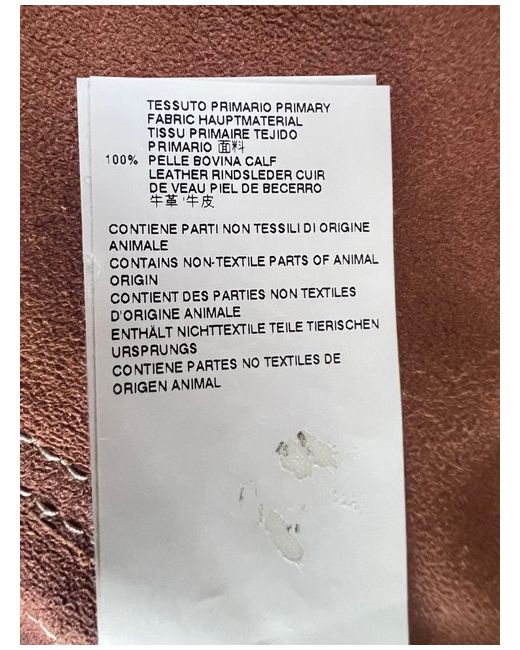 TESSUTO PRIMARIO PRIMARY
FABRIC HAUPTMATERIAL
TISSU PRIMAIRE TEJIDO
PRIMARIO 面料
100% PELLE BOVINA CALF
LEATHER RINDSLEDER CUIR
DE VEAU PIEL DE BECERRO
牛革 牛皮
CONTIENE PARTI NON TESSILI DI ORIGINE
ANIMALE
CONTAINS NON-TEXTILE PARTS OF ANIMAL
ORIGIN
CONTIENT DES PARTIES NON TEXTILES
D'ORIGINE ANIMALE
ENTHÄLT NICHTTEXTILE TEILE TIERISCHEN
URSPRUNGS
CONTIENE PARTES NO TEXTILES DE
ORIGEN ANIMAL